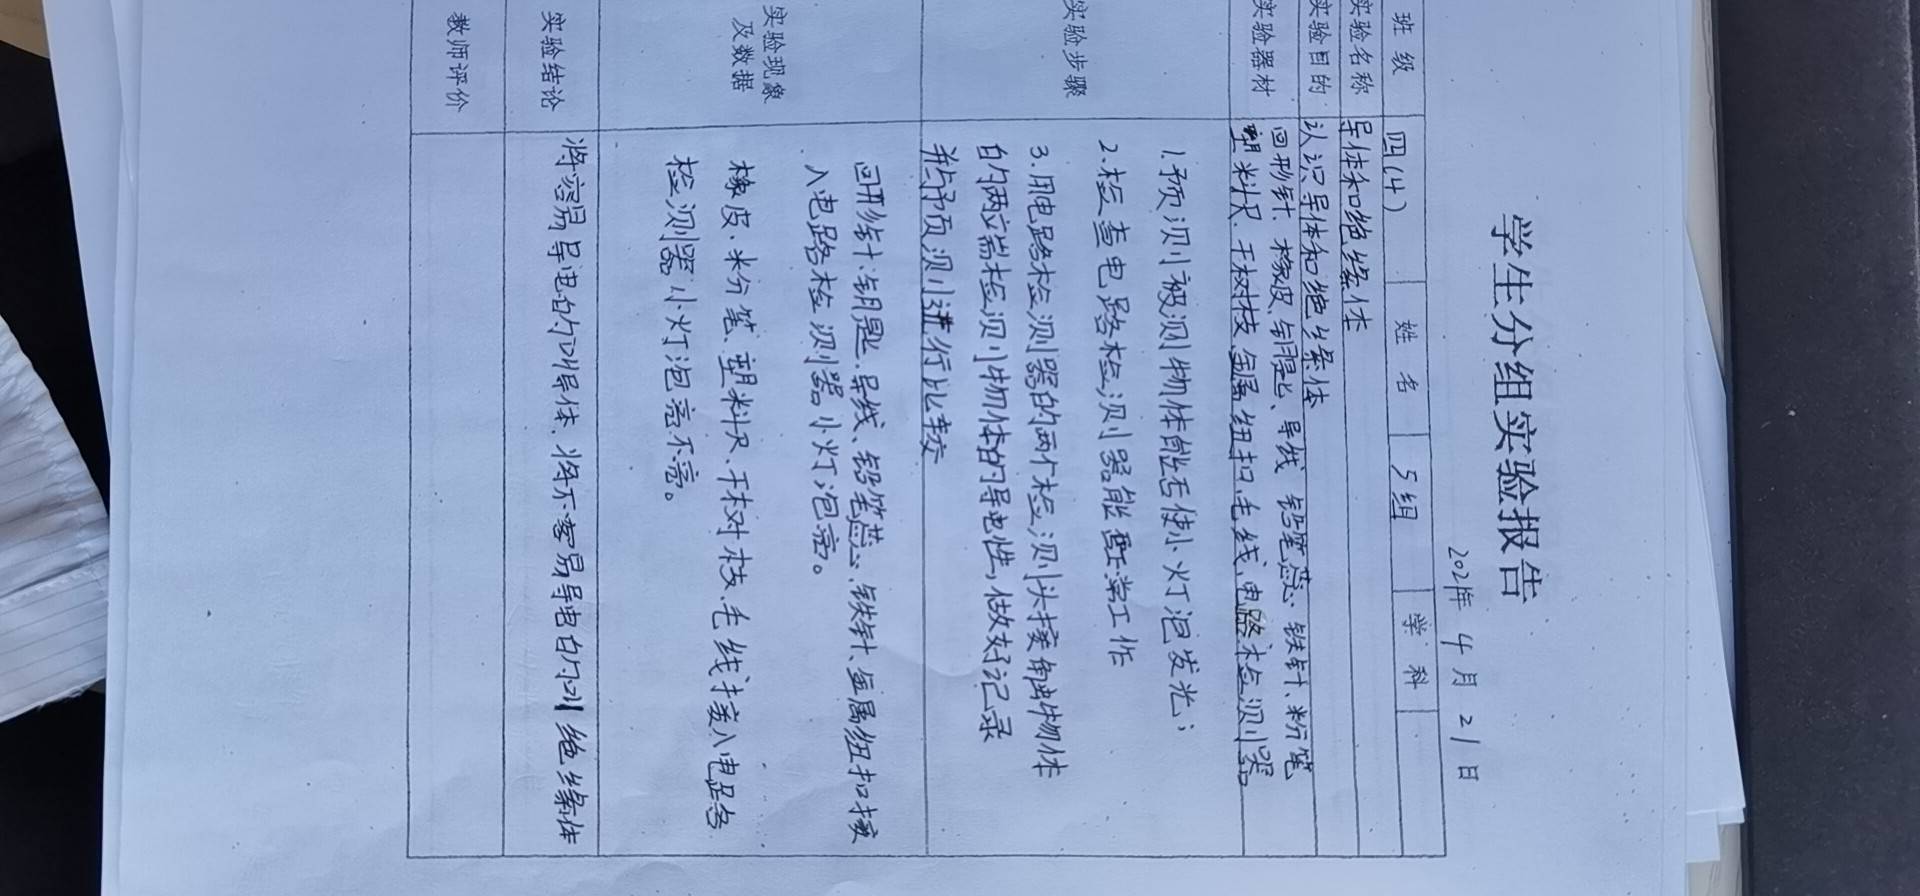 学生分组实验报告
2021年 4月 21日
班级 四(4) 姓名 5组 学科
实验名称 导体和绝缘体
实验目的 认识导体和绝缘体
实验器材 回形针 橡皮、钥匙、导线 铅笔芯、铁针、粉笔
塑料尺、干树枝 金属纽扣、毛线、电路检测器
实验步骤
1.预测被测物体能否使小灯泡发光；
2.检查电路检测器能否正常工作
3.用电路检测器的两个检测头接触物体
的两端检测物体的导电性，做好记录
并与预测进行比较
实验现象
及数据
回形针、钥匙、导线、铅笔芯、铁针、金属纽扣接
入电路检测器小灯泡亮。
橡皮、粉笔、塑料尺、干树枝、毛线接入电路
检测器小灯泡不亮。
实验结论 将容易导电的叫导体、将不容易导电的叫绝缘体
教师评价